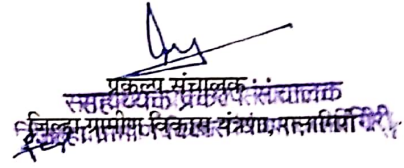 प्रकल्प संचालक
सहाय्यक प्रकल्प संचालक
जिल्हा ग्रामीण विकास यंत्रणा, रत्नागिरी.